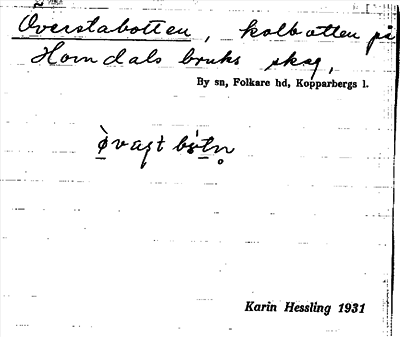 Överstabotten, kolbotten på
Horndals bruks skog,
By sn, Folkare hd, Kopparbergs l.
Karin Hessling 1931